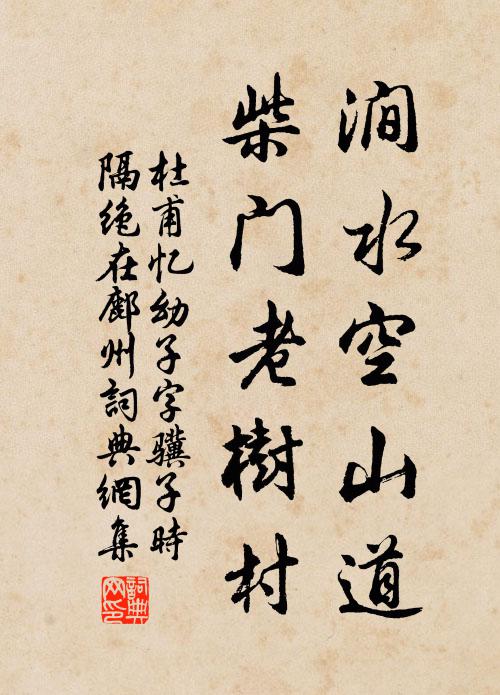 澗水空山道
柴门老樹村
杜甫忆幼子字骥子時
隔绝在鄜州詞典網集
詞典網印